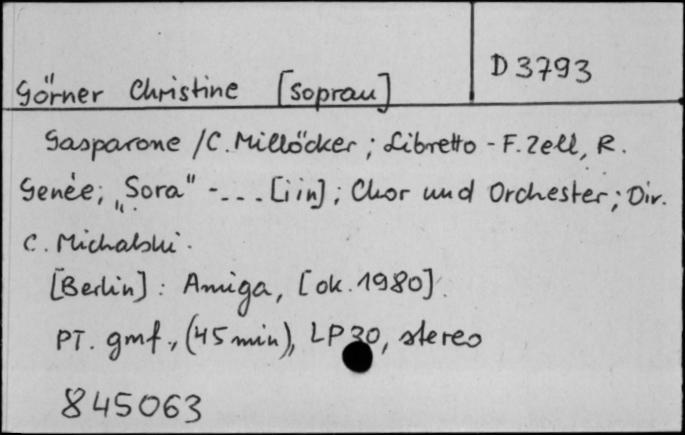 D 3793
Görner Christine [sopran]
Gasparone / C. Millöcker ; Libretto - F. Zell, R.
Genée; „Sora" - ... [i in]; Chor und Orchester; Dir.
C. Michalski.
[Berlin] : Amiga, [ok. 1980].
PT. gmf., (45 min), LP 30, stereo
845063